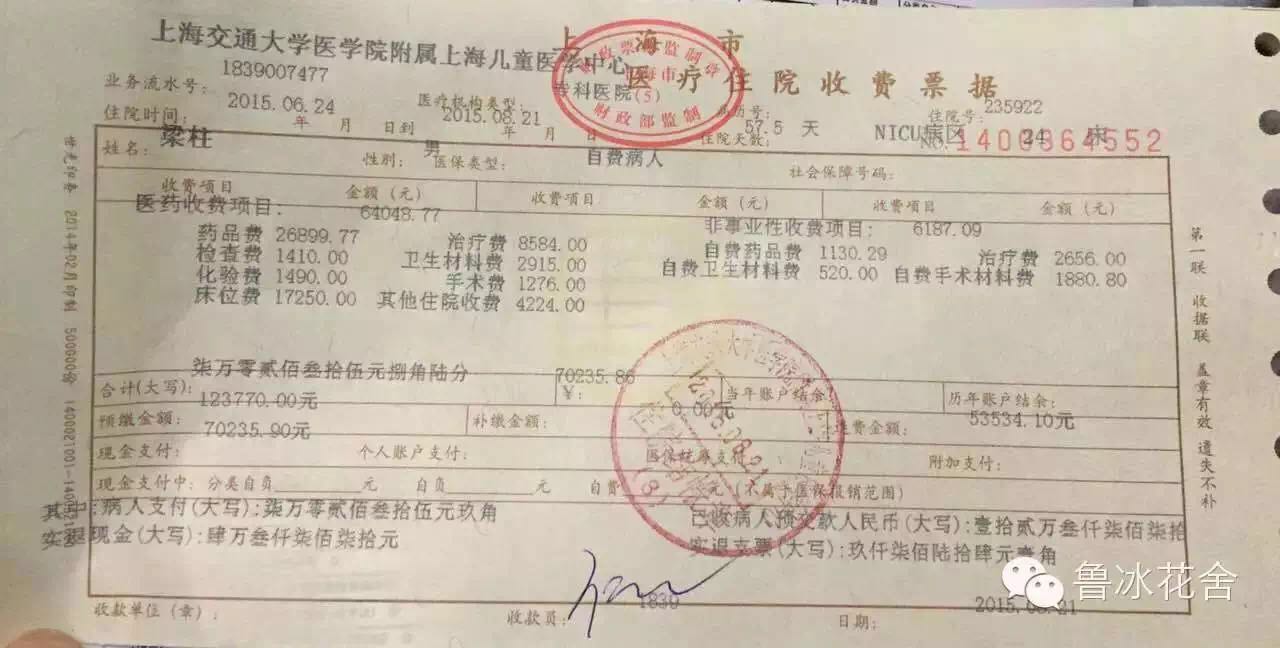 上海市
医疗住院收费票据
上海交通大学医学院附属上海儿童医学中心
业务流水号: 1839007477
医疗机构类型: 专科医院(5)
病历号:
住院号: 235922
住院时间: 2015.06.24 年 月 日到 2015.08.21 年 月 日
住院天数: 57.5 天
NICU病区 24 床
NO. 1400364552
姓名: 梁柱
性别: 男
医保类型: 自费病人
社会保障号码:
收费项目 金额(元) 收费项目 金额(元) 收费项目 金额(元)
医药收费项目: 64048.77 非事业性收费项目: 6187.09
药品费 26899.77 治疗费 8584.00 自费药品费 1130.29 治疗费 2656.00
检查费 1410.00 卫生材料费 2915.00 自费卫生材料费 520.00 自费手术材料费 1880.80
化验费 1490.00 手术费 1276.00
床位费 17250.00 其他住院收费 4224.00
柒万零贰佰叁拾伍元捌角陆分 70235.86
合计(大写): ¥: 当年账户结余: 历年账户结余:
123770.00元 0.00元 53534.10元
预缴金额: 补缴金额: 退费金额:
70235.90元
现金支付: 个人账户支付: 医保统筹支付: 附加支付:
现金支付中: 分类自负 元 自负 元 自费 元 (不属于医保报销范围)
其中:病人支付(大写):柒万零贰佰叁拾伍元玖角 已收病人预交款人民币(大写):壹拾贰万叁仟柒佰柒拾
实退现金(大写):肆万叁仟柒佰柒拾元 实退支票(大写):玖仟柒佰陆拾肆元壹角
收款单位(章): 收款员: 1839 日期: 2015.08.21
第一联 收据联 盖章有效 遗失不补
2014年02月印制
财政部监制
2015.08.21
鲁冰花舍